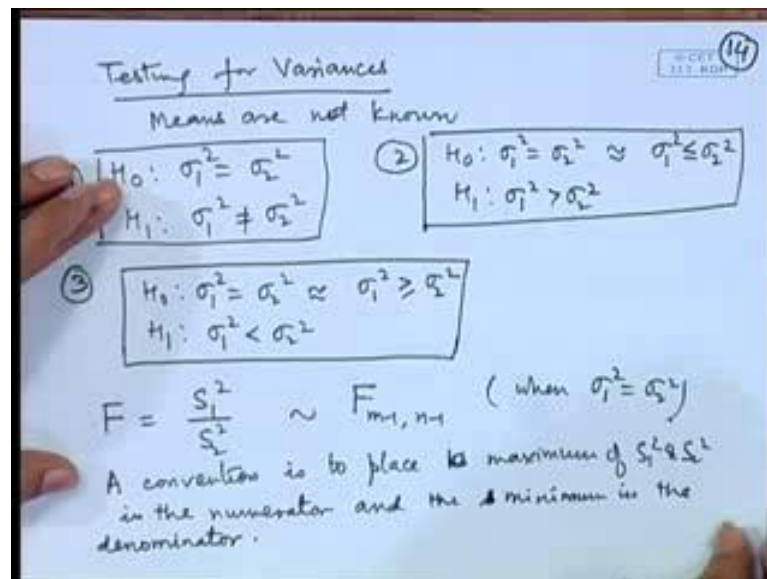 14
Testing for Variances
Means are not known
H₀: σ₁² = σ₂²
H₁: σ₁² ≠ σ₂²
② H₀: σ₁² = σ₂² ≈ σ₁² ≤ σ₂²
H₁: σ₁² > σ₂²
③ H₀: σ₁² = σ₂² ≈ σ₁² ≥ σ₂²
H₁: σ₁² < σ₂²
F = S₁² / S₂² ~ F m-1, n-1 (when σ₁² = σ₂²)
A convention is to place maximum of S₁² & S₂²
in the numerator and the minimum in the
denominator.